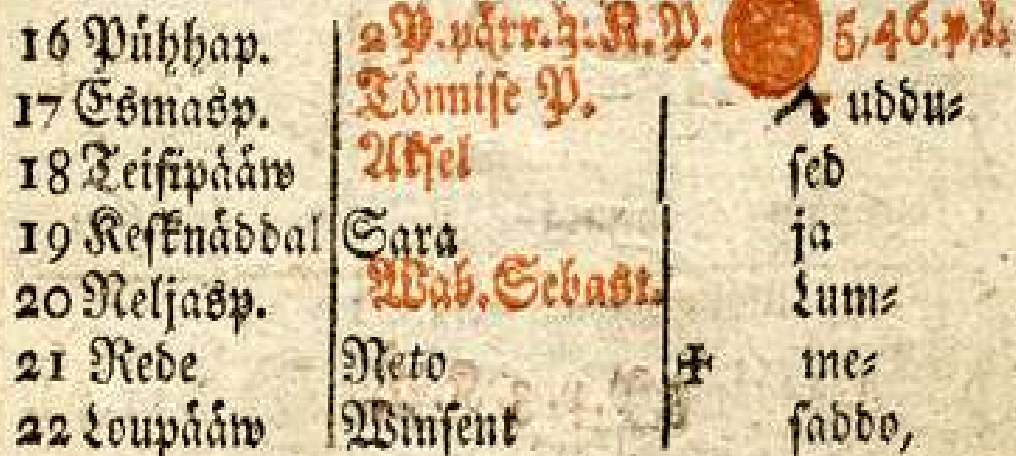 16 Pühhap. 2 P. pärr. 3. K. P. 5,46. p. l.
17 Esmasp. Tönnise P. Uddu⸗
18 Teisipääw Aksel sed
19 Kesknäddal Sara ja
20 Neljasp. Wab. Sebast. Lum⸗
21 Rede Neto ✠ me⸗
22 Loupääw Winsent saddo,